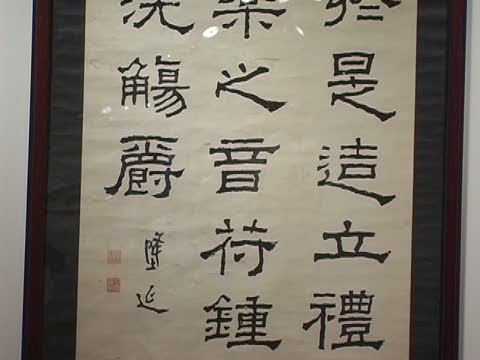 於是造立禮
樂之音苻鍾
洗觴爵
隆延